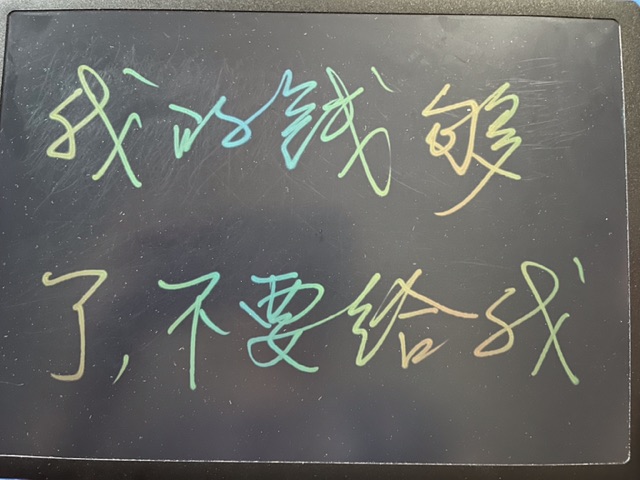 我的钱够
了,不要给我